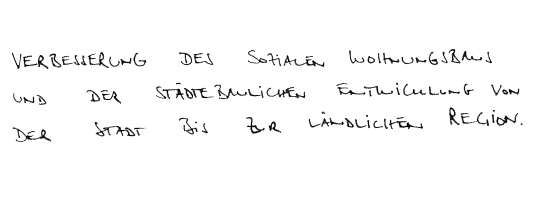 VERBESSERUNG DES SOZIALEN WOHNUNGSBAUS
UND DER STÄDTEBAULICHEN ENTWICKLUNG VON
DER STADT BIS ZUR LÄNDLICHEN REGION.